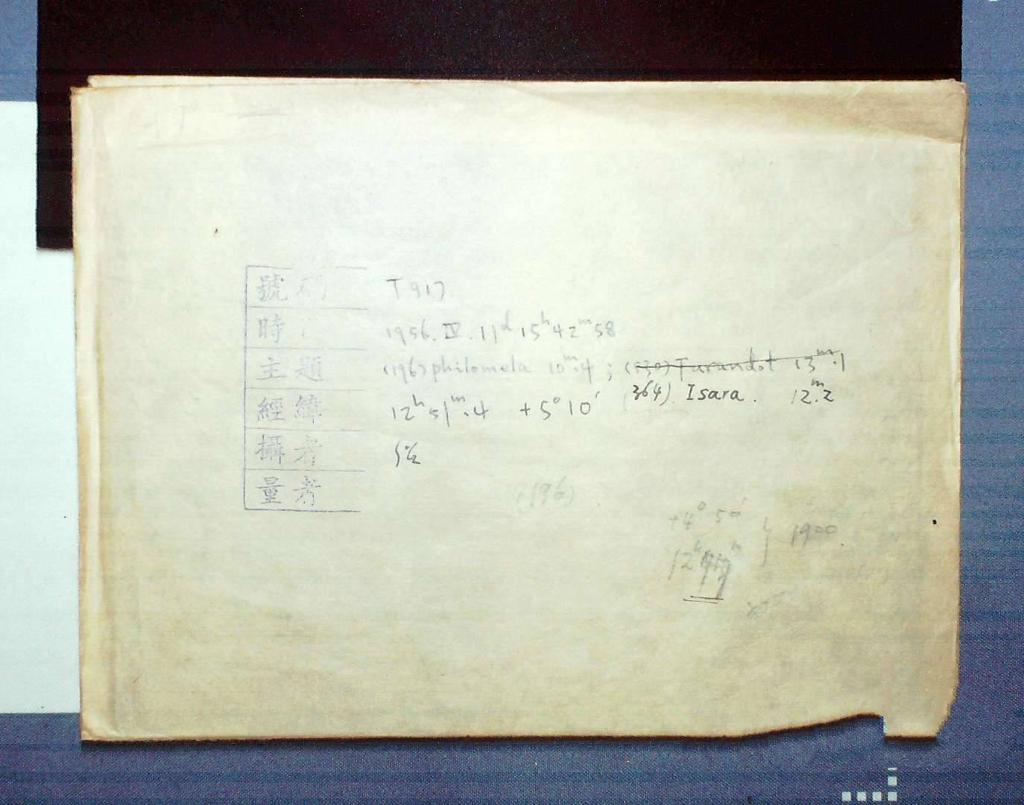 號 T917
時 1956. IV. 11ᵈ 15ʰ 42ᵐ 58
主題 (196) philomela 10ᵐ.4 ; (530) Turandot 13ᵐ.1
364) Isara. 12ᵐ.2
經緯 12ʰ 51ᵐ.4 +5° 10′
攝者
量者
(196)
+4° 50′
12ʰ } 1900.